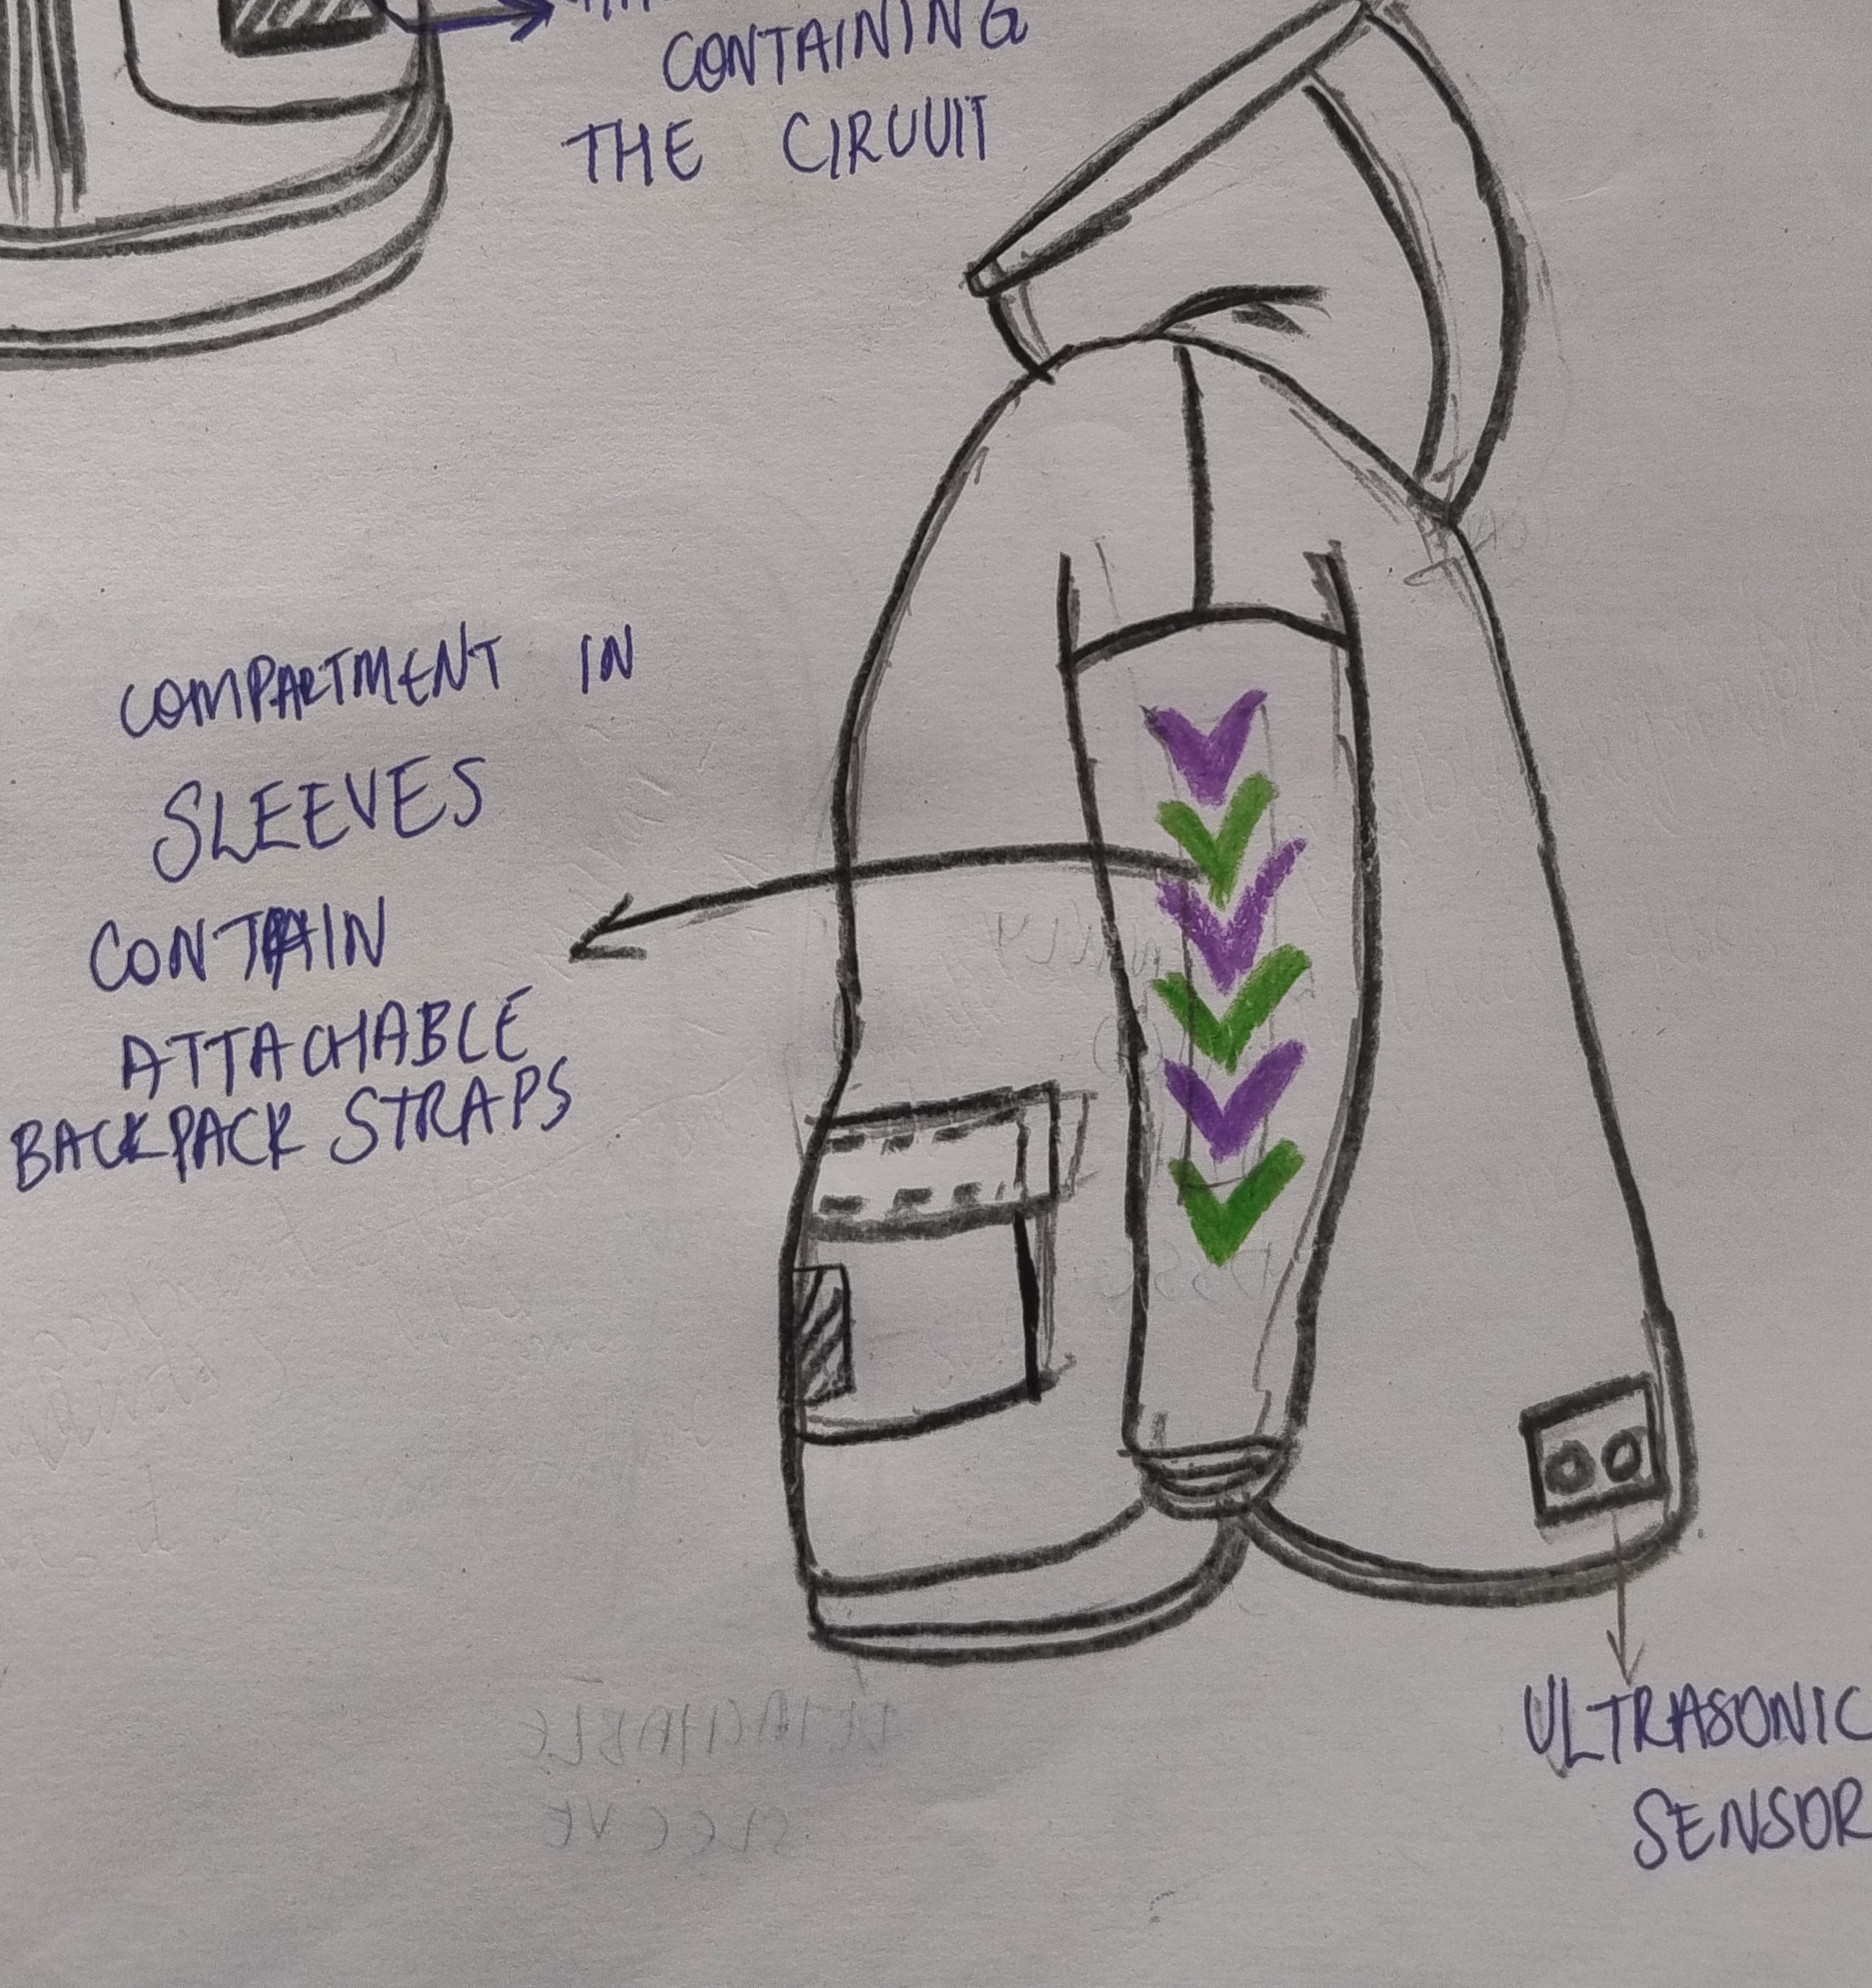 CONTAINING
THE CIRUUIT
COMPARTMENT IN
SLEEVES
CONTAIN
ATTACHABLE
BACKPACK STRAPS
ULTRASONIC
SENSOR